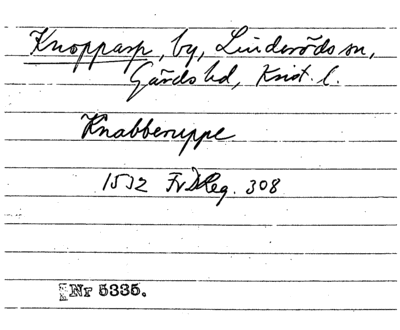 Knopparp, by, Linderöds sn,
Gärds hd, Krist. l.
Knabberuppe
1532 FrDReg. 308
Nr 5335.